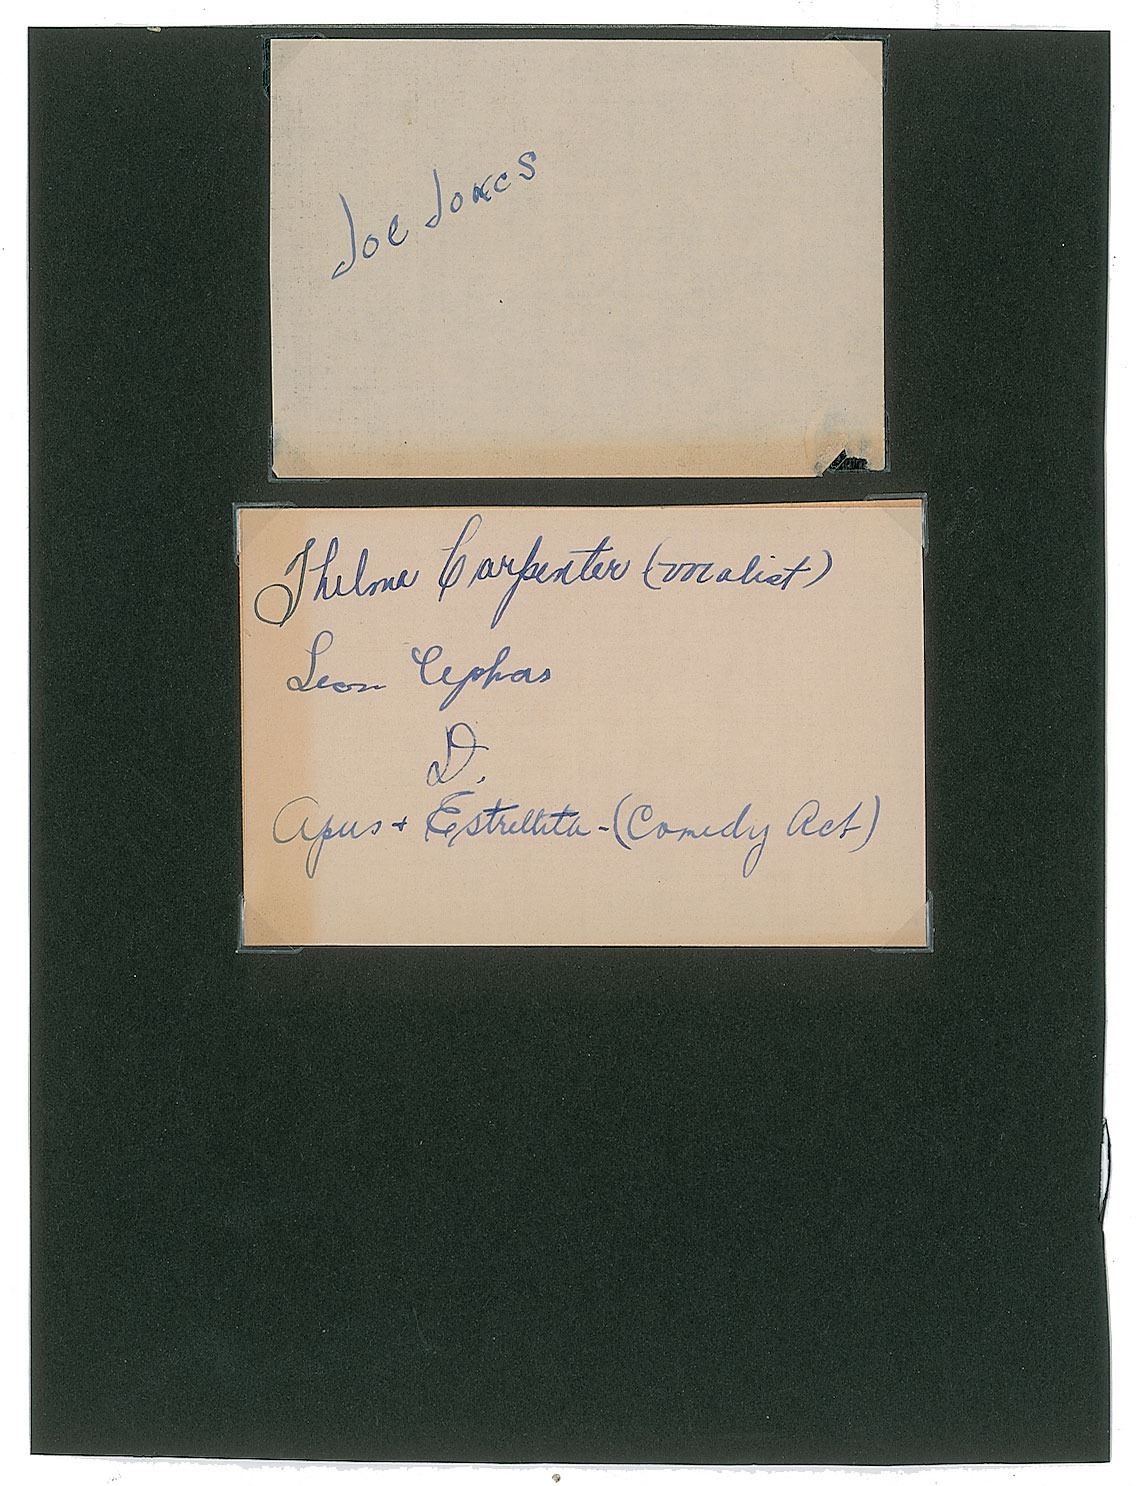 Joe Jones
Thelma Carpenter (vocalist)
Leon Cephas
D.
Apus + Estrellita - (Comedy Act)